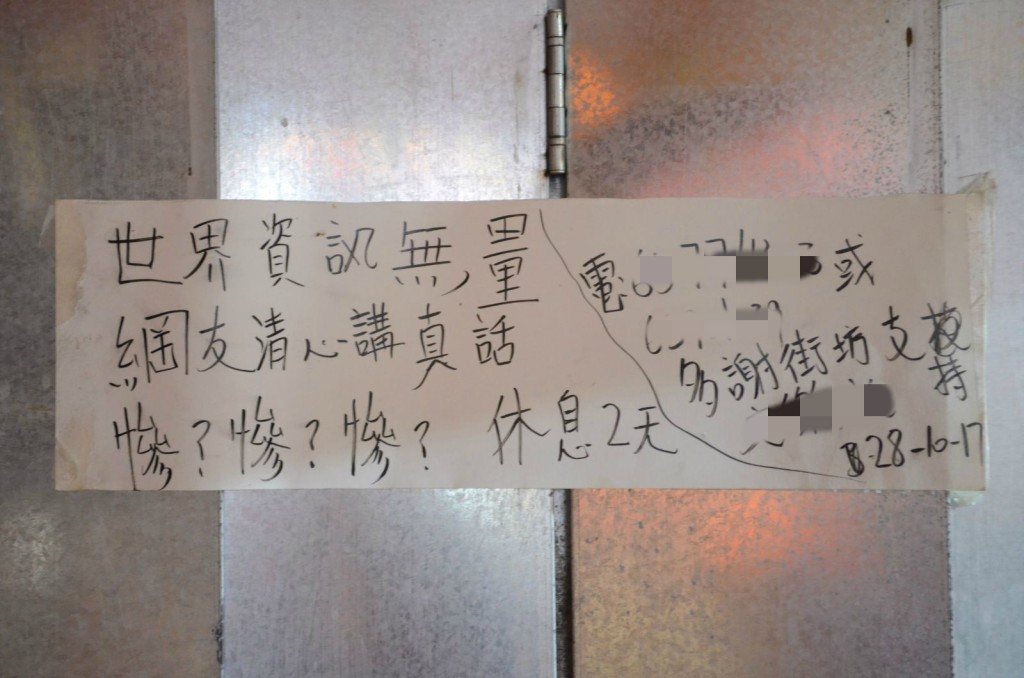 世界資訊無量
網友清心講真話
慘？慘？慘？ 休息2天
電 或
多謝街坊支持
28-10-17